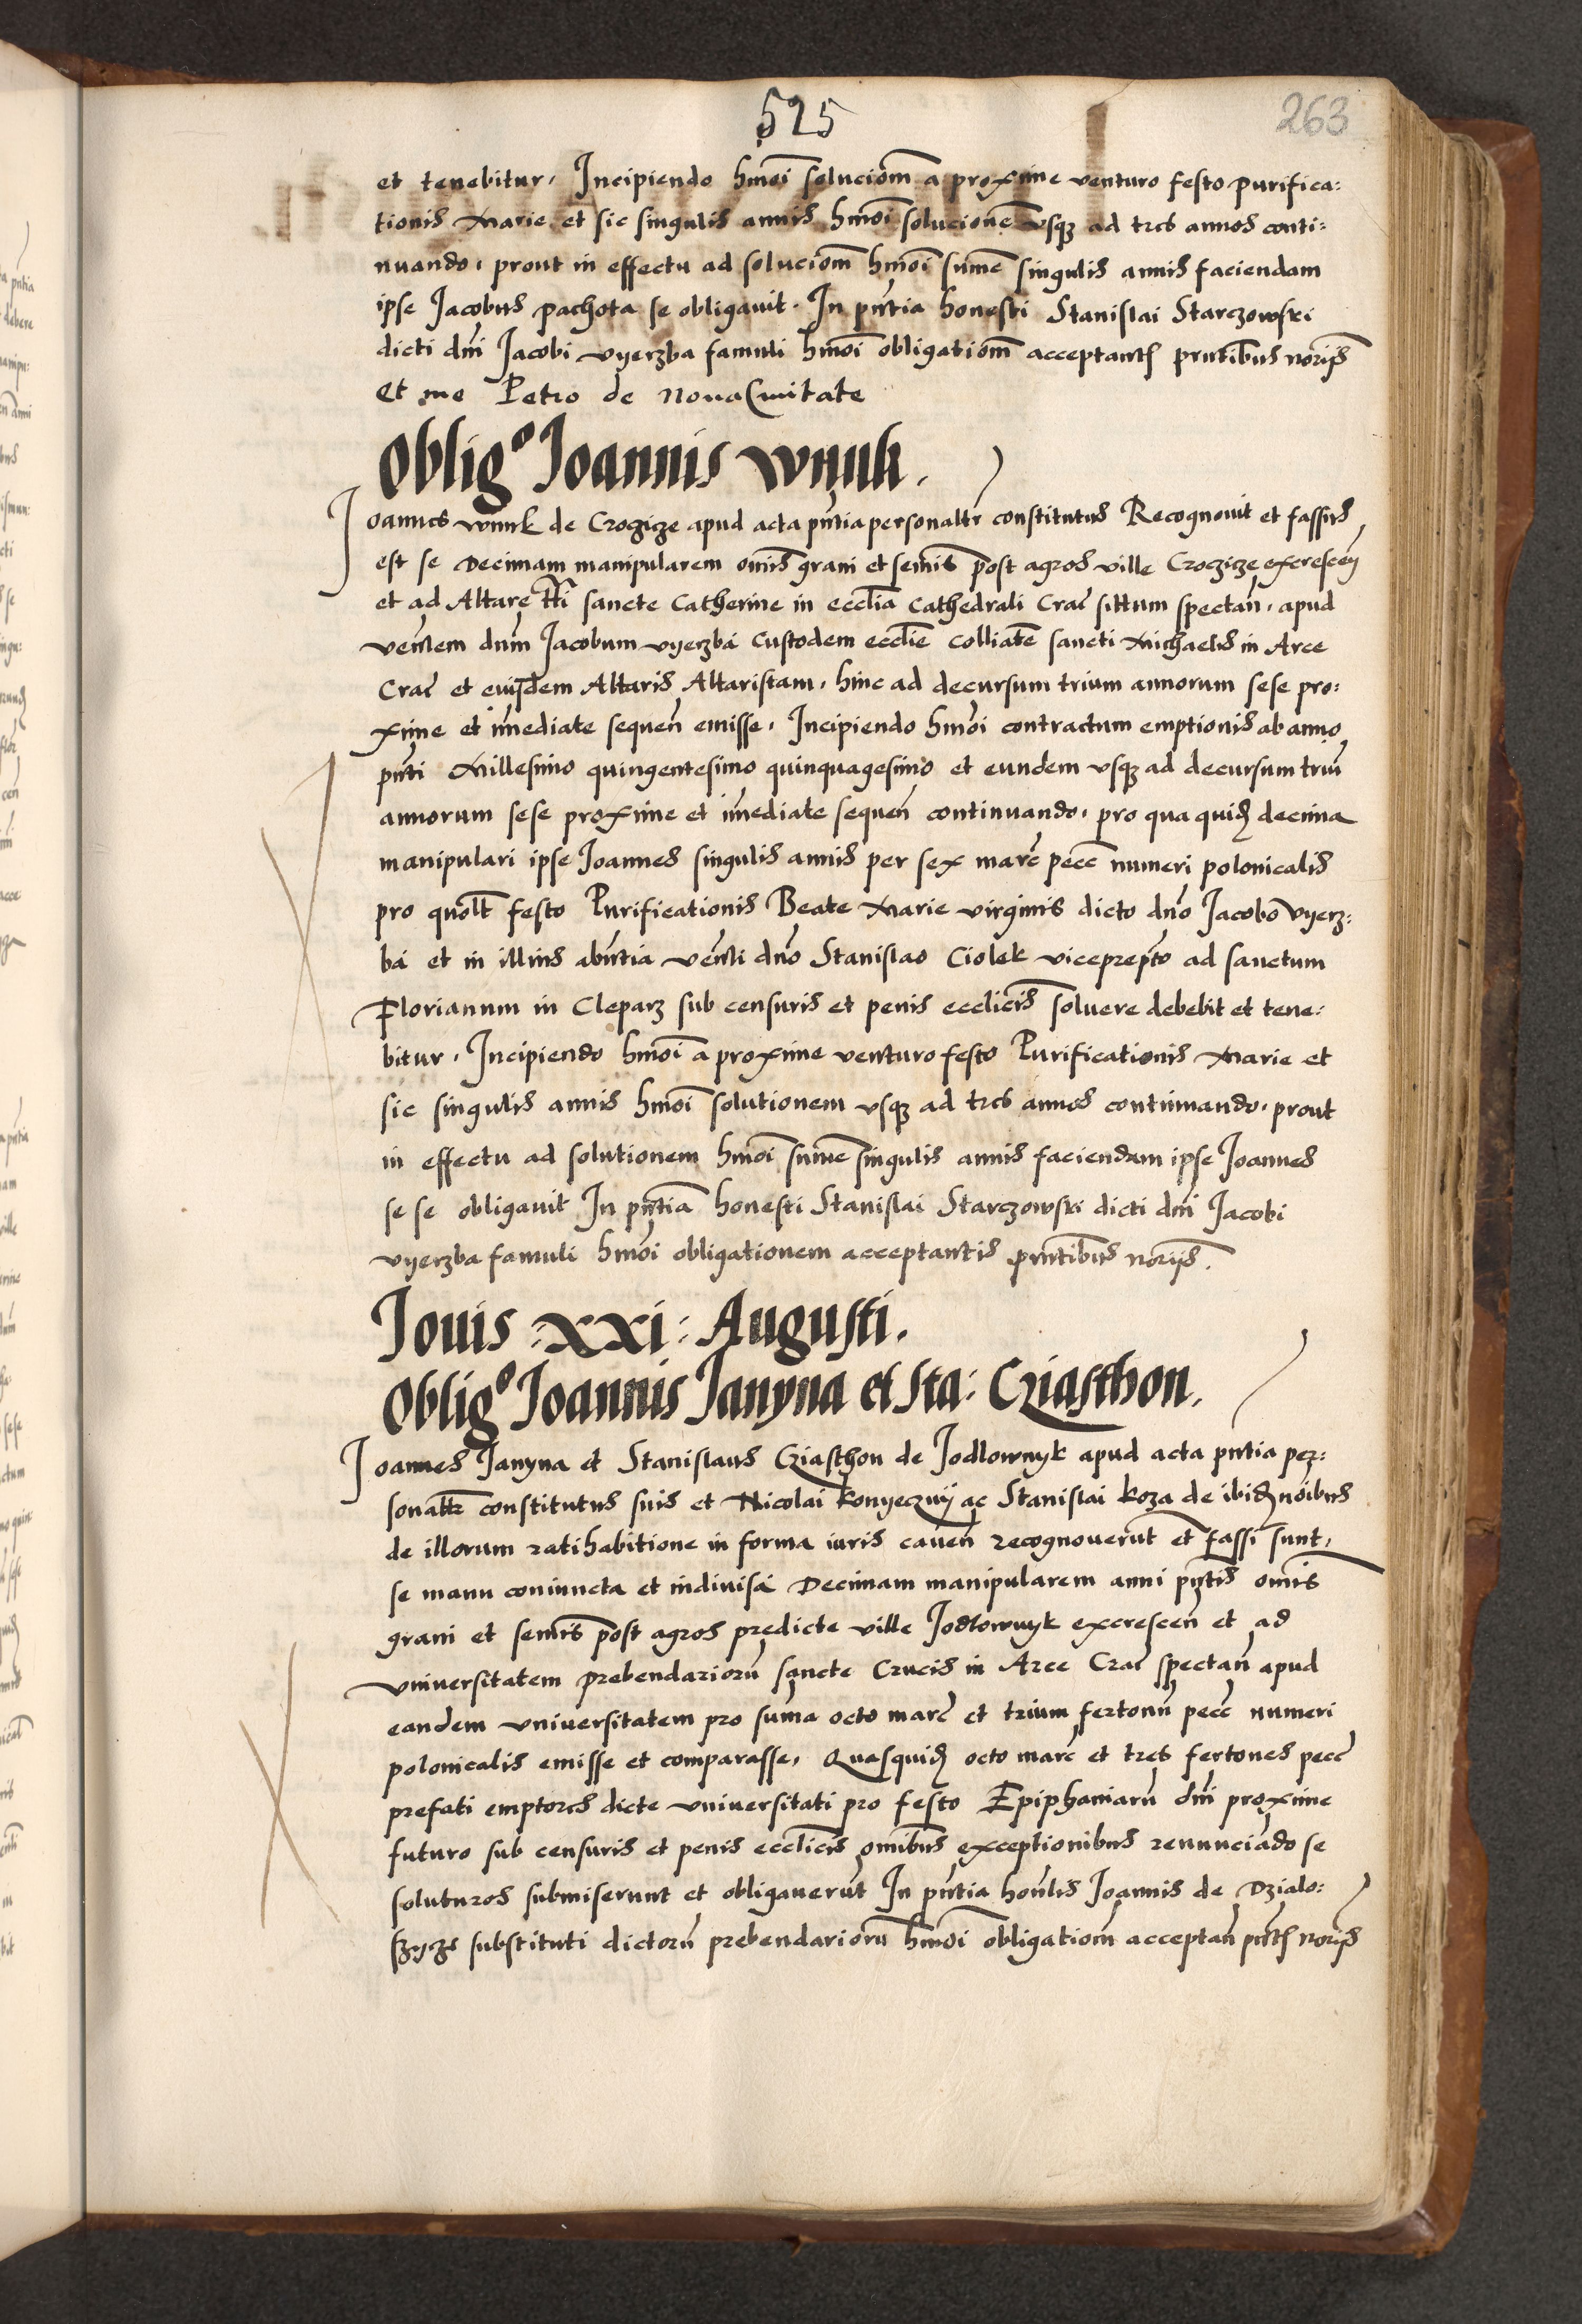 525
263
et tenebitur, Incipiendo hmoi soluciom a proxime venturo festo purifica:
tionis Marie et sic singulis annis hmoi solucione vsq3 ad tres annos conti:
nuando, prout in effectu ad soluciom hmoi sume singulis annis faciendam
ipse Jacobus pachota se obligauit. In pntia honesti Stanislai Starczowski
dicti dni Jacobi vyerzba famuli hmoi obligatiom acceptantis pntibus norijs
Et me Petro de Noua Ciuitate
Oblig° Joannis wnuk.
Joannes wnuk de Croczicze apud acta pntia personaltr constitutus Recognouit et fassus
est se Decimam manipularem omis grani et semis post agros ville Croczicze excrescen
et ad Altare tti sancte Catherine in ecclia Cathedrali Crac situm spectan, apud
venlem dnm Jacobum vyerzba Custodem ecclie Colliate sancti Michaelis in Arce
Crac et euisdem Altaris Altaristam, hinc ad decursum trium annorum sese pro:
xime et imediate sequen emisse, Incipiendo hmoi contractum emptionis ab anno
pnti Millesimo quingentesimo quinquagesimo et eundem vsq3 ad decursum triu
annorum sese proxime et imediate sequen continuando, pro qua quid decima
manipulari ipse Joannes singulis annis per sex marc pecc numeri polonicalis
pro quolt festo Purificationis Beate Marie virginis dicto dno Jacobo vyerz:
ba et in illius abntia venli dno Stanislao Ciolek viceprepto ad sanctum
Florianum in Cleparz sub censuris et penis ecclicis soluere debebit et tene:
bitur, Incipiendo hmoi a proxime venturo festo Purificationis Marie et
sic singulis annis hmoi solutionem vsq3 ad tres annos continuando, prout
in effectu ad solutionem hmoi sume singulis annis faciendam ipse Joannes
se se obligauit In pntia honesti Stanislai Starczowski dicti dni Jacobi
vyerzba famuli hmoi obligationem acceptantis pntibus norijs.
Jouis :xxi: Augusti.
Oblig° Joannis Janyna et Sta: Cziasthon.
Joannes Janyna et Stanislaus Cziasthon de Jodlownyk apud acta pntia per:
sonaltr constitutus suis et Nicolai konyeczny ac Stanislai koza de ibid noibus
de illorum ratihabitione in forma iuris cauen recognouerut et fassi sunt,
se manu coniuncta et indiuisa Decimam manipularem anni pntis omis
grani et semis post agros predicte ville Jodlownyk excrescen et ad
vniuersitatem prebendarioru sancte Crucis in Arce Crac spectan apud
eandem vniuersitatem pro suma octo marc et trium fertonu pecc numeri
polonicalis emisse et comparasse, Quasquid octo marc et tres fertones pecc
prefati emptores dicte vniuersitati pro festo Epiphaniaru dni proxime
futuro sub censuris et penis ecclicis omibus exceptionibus renunciado se
soluturos submiserunt et obligauerut In pntia honlis Joannis de Dzialo:
szycze substituti dictoru prebendarioru hmoi obligatiom acceptan pntibus norijs